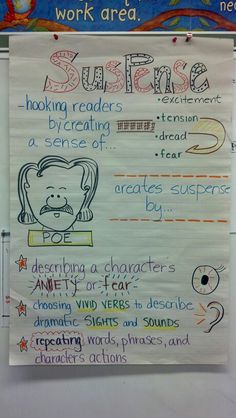 work area.
SUSPENSE
-hooking readers
by creating
a sense of...
• excitement
• tension
• dread
• fear
POE
creates suspense
by...
describing a characters
ANXIETY or fear
choosing VIVID VERBS to describe
dramatic SIGHTS and SOUNDS
repeating words, phrases, and
characters actions